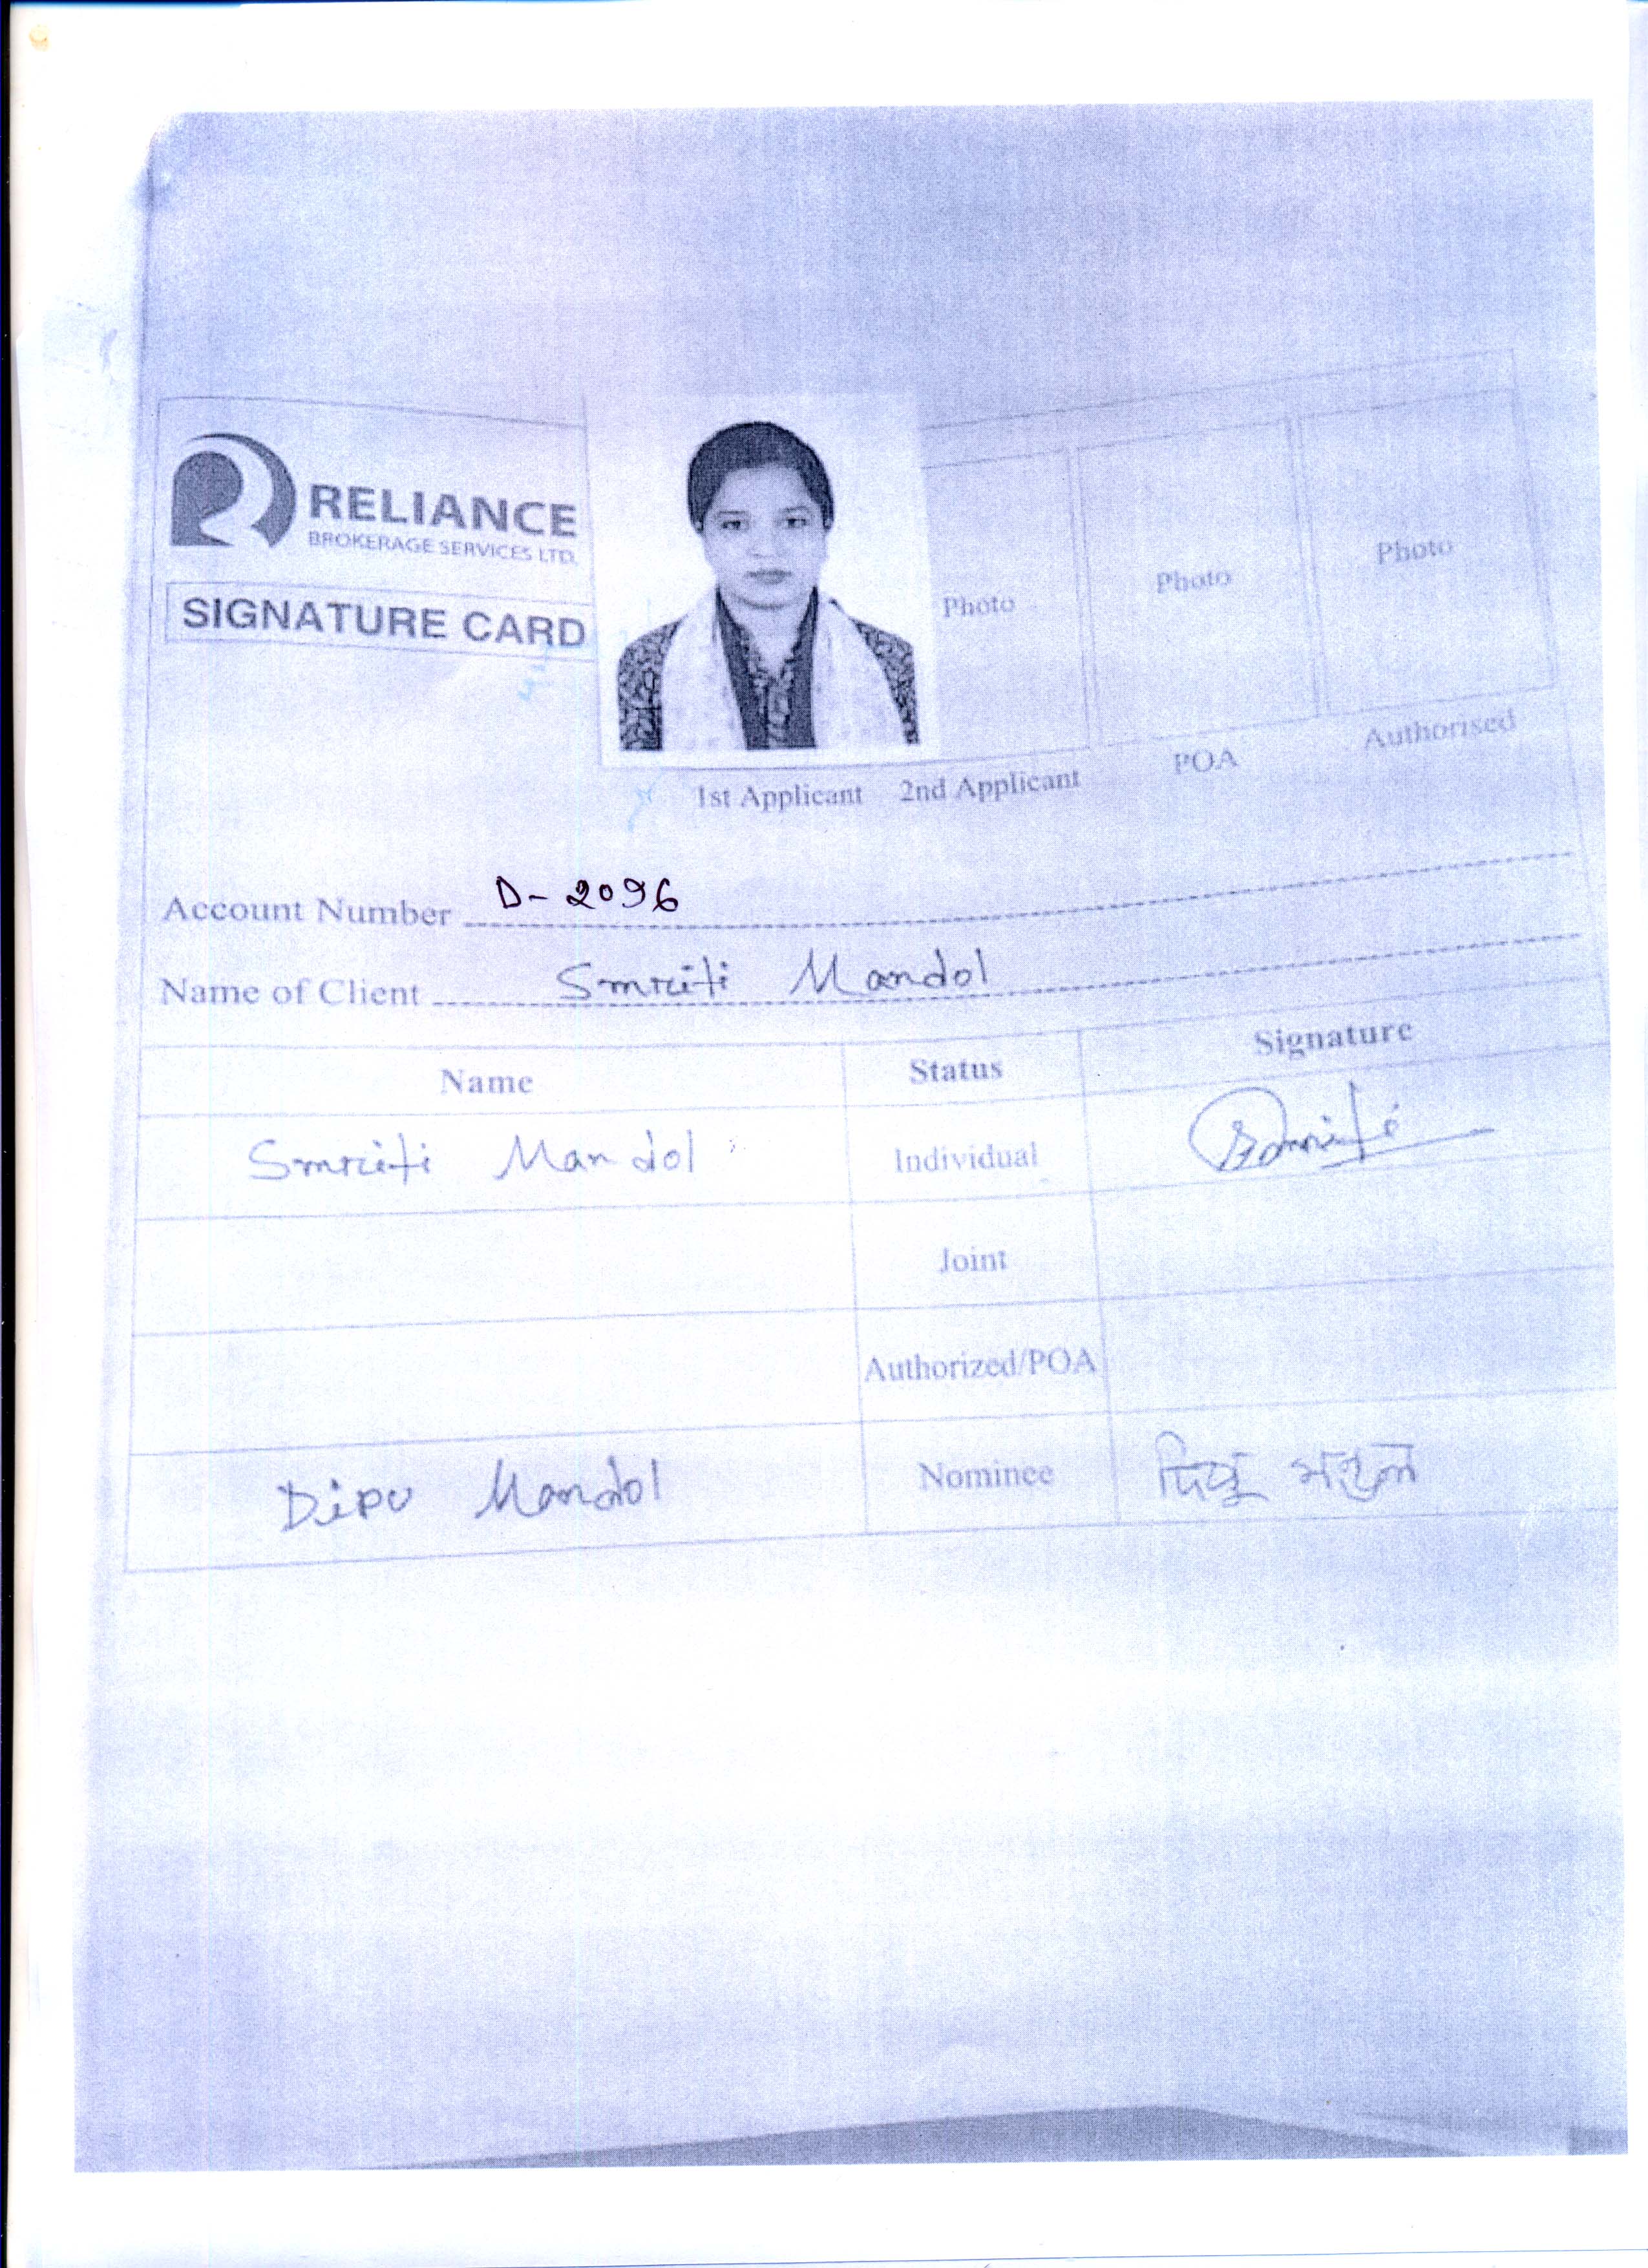 RELIANCE
BROKERAGE SERVICES LTD.
SIGNATURE CARD
Photo Photo Photo
1st Applicant 2nd Applicant POA Authorised
Account Number D-2096
Name of Client Smriti Mandol
Name Status Signature
Smriti Mandol Individual Smriti
Joint
Authorized/POA
Dipu Mandol Nominee দিপু মন্ডল